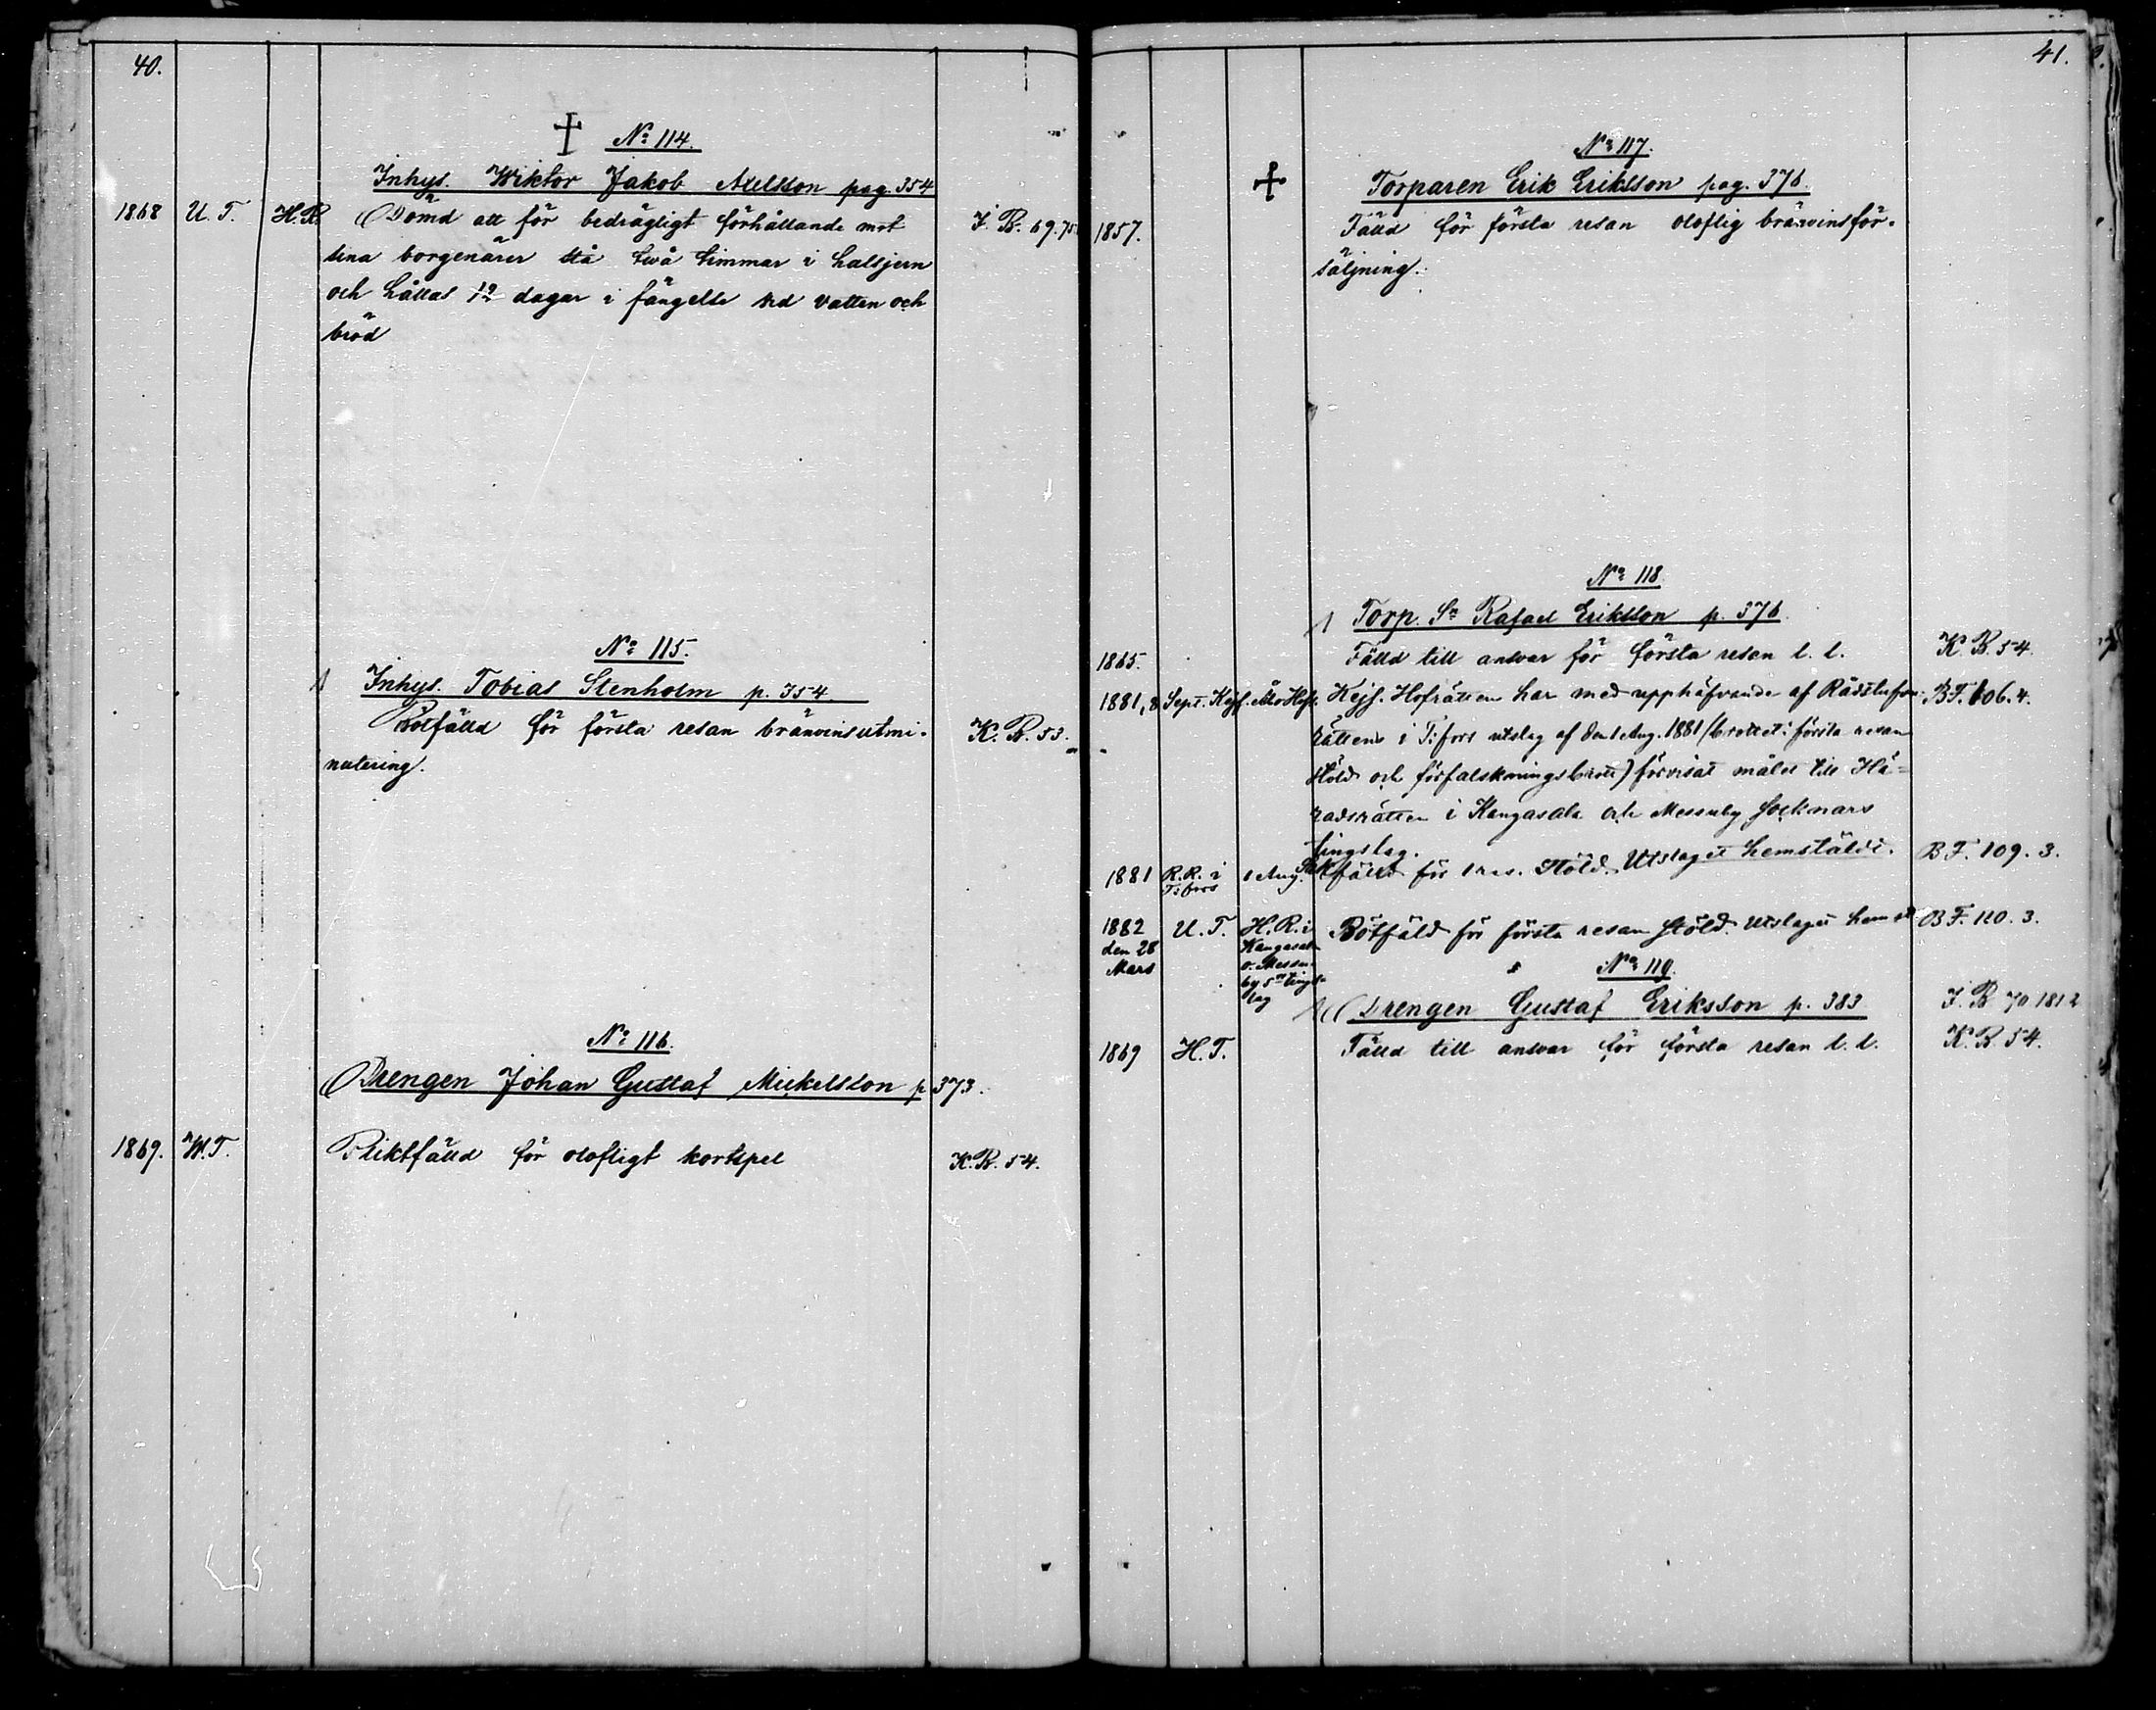 40.
† No 114.
Inhys. Wiktor Jakob Axelsson pag. 354
1868 U. T. H. R. Dömd att för bedrägligt förhållande mot I. B. 69.75.
sina borgenärer stå två timmar i halsjern
och hållas 12 dagar i fängelse vid vatten och
bröd
No 115.
Inhys. Tobias Stenholm p. 354.
Botfälld för första resan bränvinsutmi- K. B. 53.
nutering.
No 116.
Drengen Johan Gustaf Mickelsson p 373.
1869. W. T. Pliktfälld för olofligt kortspel K. B. 54.
41.
No 117.
† Torparen Erik Eriksson pag. 376.
1857. Fälld för första resan oloflig bränvinsför-
säljning.
No 118.
Torp. Sn Rafael Eriksson p. 376.
1865. Fälld till ansvar för första resan l. l. K. B. 54.
1881, 8 Sept. Kejs. Åbo Hofr. Kejs. Hofrätten har med upphäfvande af Rådstufvu- BF. 106.4.
rättens i T:fors utslag af den 1 Aug. 1881 (brottet: första resan
stöld och förfalskningsbrott) förvisat målet till Hä-
radsrätten i Kangasala och Messuby Socknars
tingslag.
1881 R. R. i T:fors 1 Aug. fälld för 1 res. Stöld. Utslaget hemstäldt. BF. 109. 3.
1882 U. T. H. R. i Bötfäld för första resan stöld. Utslaget hemst BF. 110. 3.
den 28 Kangasala
Mars o. Messu-
by sn tings-
lag
No 119.
Drengen Gustaf Eriksson p. 383 I. B 70 1812
1869 H. T. Fälld till ansvar för första resan l. l. K. B. 54.